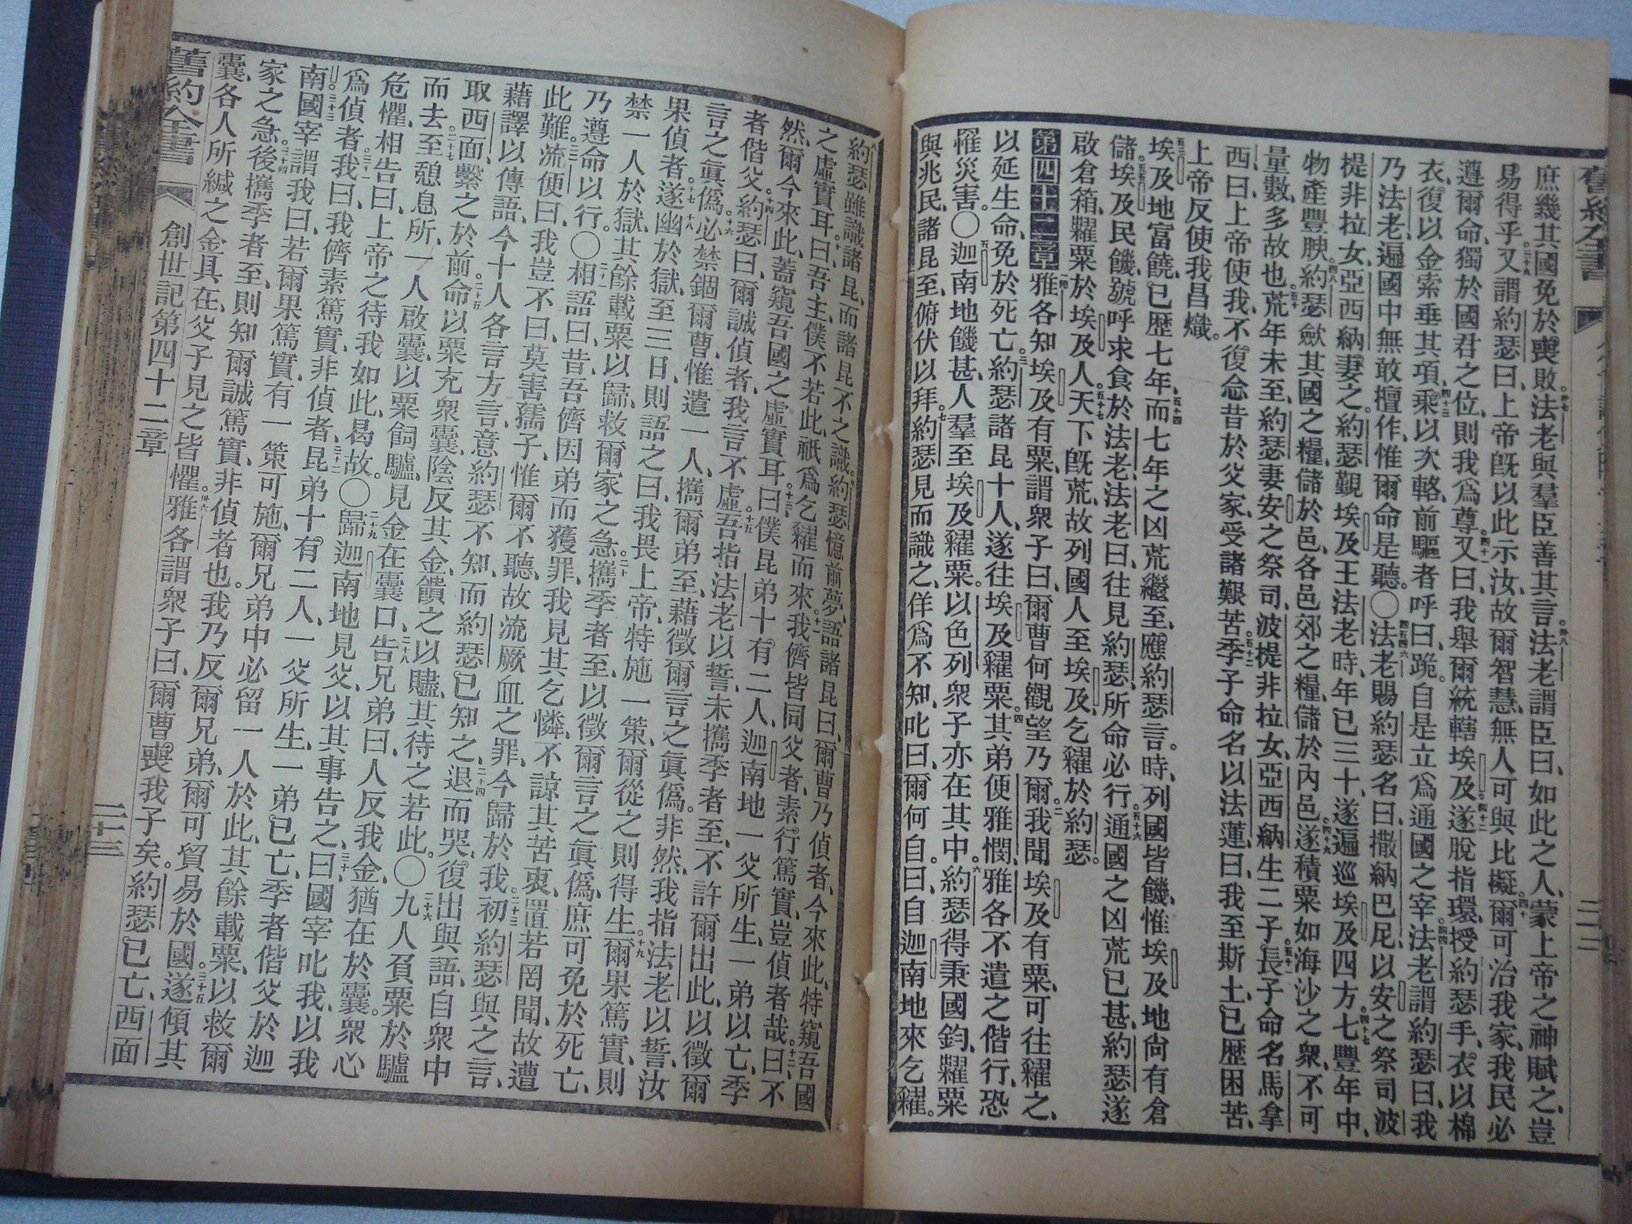 庶幾其國免於喪敗、法老與羣臣善其言、法老謂臣曰、如此之人、蒙上帝之神賦之、豈
易得乎、又謂約瑟曰、上帝旣以此示汝、故爾智慧、無人可與比擬、爾可治我家、我民必
遵爾命、獨於國君之位、則我爲尊、又曰、我舉爾統轄埃及、遂脫指環、授約瑟手、衣以棉
衣、復以金索垂其項、乘以次輅、前驅者呼曰、跪、自是立爲通國之宰、法老謂約瑟曰、我
乃法老、遍國中無敢擅作、惟爾命是聽。〇法老賜約瑟名曰撒納巴尼、以安之祭司波
提非拉女、亞西納妻之、約瑟覲埃及王法老時、年已三十、遂遍巡埃及四方、七豐年中、
物產豐腴、約瑟斂其國之糧、儲於邑、各邑郊之糧、儲於內邑、遂積粟如海沙之衆、不可
量數、多故也、荒年未至、約瑟妻安之祭司、波提非拉女、亞西納生二子、長子命名馬拿
西、曰、上帝使我、不復念昔於父家、受諸艱苦、季子命名以法蓮、曰、我至斯土、已歷困苦、
上帝反使我昌熾。
埃及地富饒、已歷七年、而七年之凶荒繼至、應約瑟言。時、列國皆饑、惟埃及地尙有倉
儲、埃及民饑、號呼求食於法老、法老曰、往見約瑟、所命必行、通國之凶荒已甚、約瑟遂
啟倉箱、糶粟於埃及人、天下旣荒、故列國人至埃及、乞糴於約瑟。
第四十二章 雅各知埃及有粟、謂衆子曰、爾曹何觀望乃爾、我聞埃及有粟、可往糴之、
以延生命、免於死亡、約瑟諸昆十人、遂往埃及糴粟、其弟便雅憫、雅各不遣之偕行、恐
罹災害。〇迦南地饑甚、人羣至埃及糴粟、以色列衆子亦在其中、約瑟得秉國鈞、糶粟
與兆民、諸昆至、俯伏以拜、約瑟見而識之、佯爲不知、叱曰、爾何自、曰、自迦南地來乞糴。
約瑟雖識諸昆、而諸昆不之識、約瑟憶前夢、語諸昆曰、爾曹乃偵者、今來此、特窺吾國
之虛實耳、曰、吾主、僕不若此、祇爲乞糴而來、我儕皆同父者、素行篤實、豈偵者哉、曰、不
然、爾今來此、蓋窺吾國之虛實耳、曰、僕昆弟十有二人、迦南地一父所生、一弟以亡、季
者偕父、約瑟曰、爾誠偵者、我言不虛、吾指法老以誓、未攜季者至、不許爾出此、以徵爾
言之眞僞、必禁錮爾曹、惟遣一人、攜爾弟至、藉徵爾言之眞僞。非然、我指法老以誓、汝
果偵者、遂幽於獄、至三日、則語之曰、我畏上帝、特施一策、爾從之則得生、爾果篤實、則
禁一人於獄、其餘載粟以歸、救爾家之急、攜季者至、以徵爾言之眞僞、庶可免於死亡、
乃遵命以行。〇相語曰、昔吾儕因弟而獲罪、我見其乞憐、不諒其苦衷、置若罔聞、故遭
此難、流便曰、我豈不曰、莫害孺子、惟爾不聽、故流厥血之罪、今歸於我、初約瑟與之言、
藉譯以傳語、今十人各言方言、意約瑟不知、而約瑟已知之、退而哭、復出與語、自衆中
取西面、繫之於前、命以粟充衆囊、陰反其金、饋之以贐、其待之若此。〇九人負粟於驢
而去、至憩息所、一人啟囊、以粟飼驢、見金在囊口、告兄弟曰、人反我金、猶在於囊、衆心
危懼、相告曰、上帝之待我如此、曷故。〇歸迦南地見父、以其事告之曰、國宰叱我、以我
爲偵者、我曰、我儕素篤實、非偵者、昆弟十有二人、一父所生、一弟已亡、季者偕父於迦
南、國宰謂我曰、若爾果篤實、有一策可施、爾兄弟中必留一人於此、其餘載粟、以救爾
家之急、後攜季者至、則知爾誠篤實、非偵者也、我乃反爾兄弟、爾可貿易於國、遂傾其
囊、各人所緘之金具在、父子見之皆懼、雅各謂衆子曰、爾曹喪我子矣、約瑟已亡、西面
舊約全書 創世記第四十二章 三十三